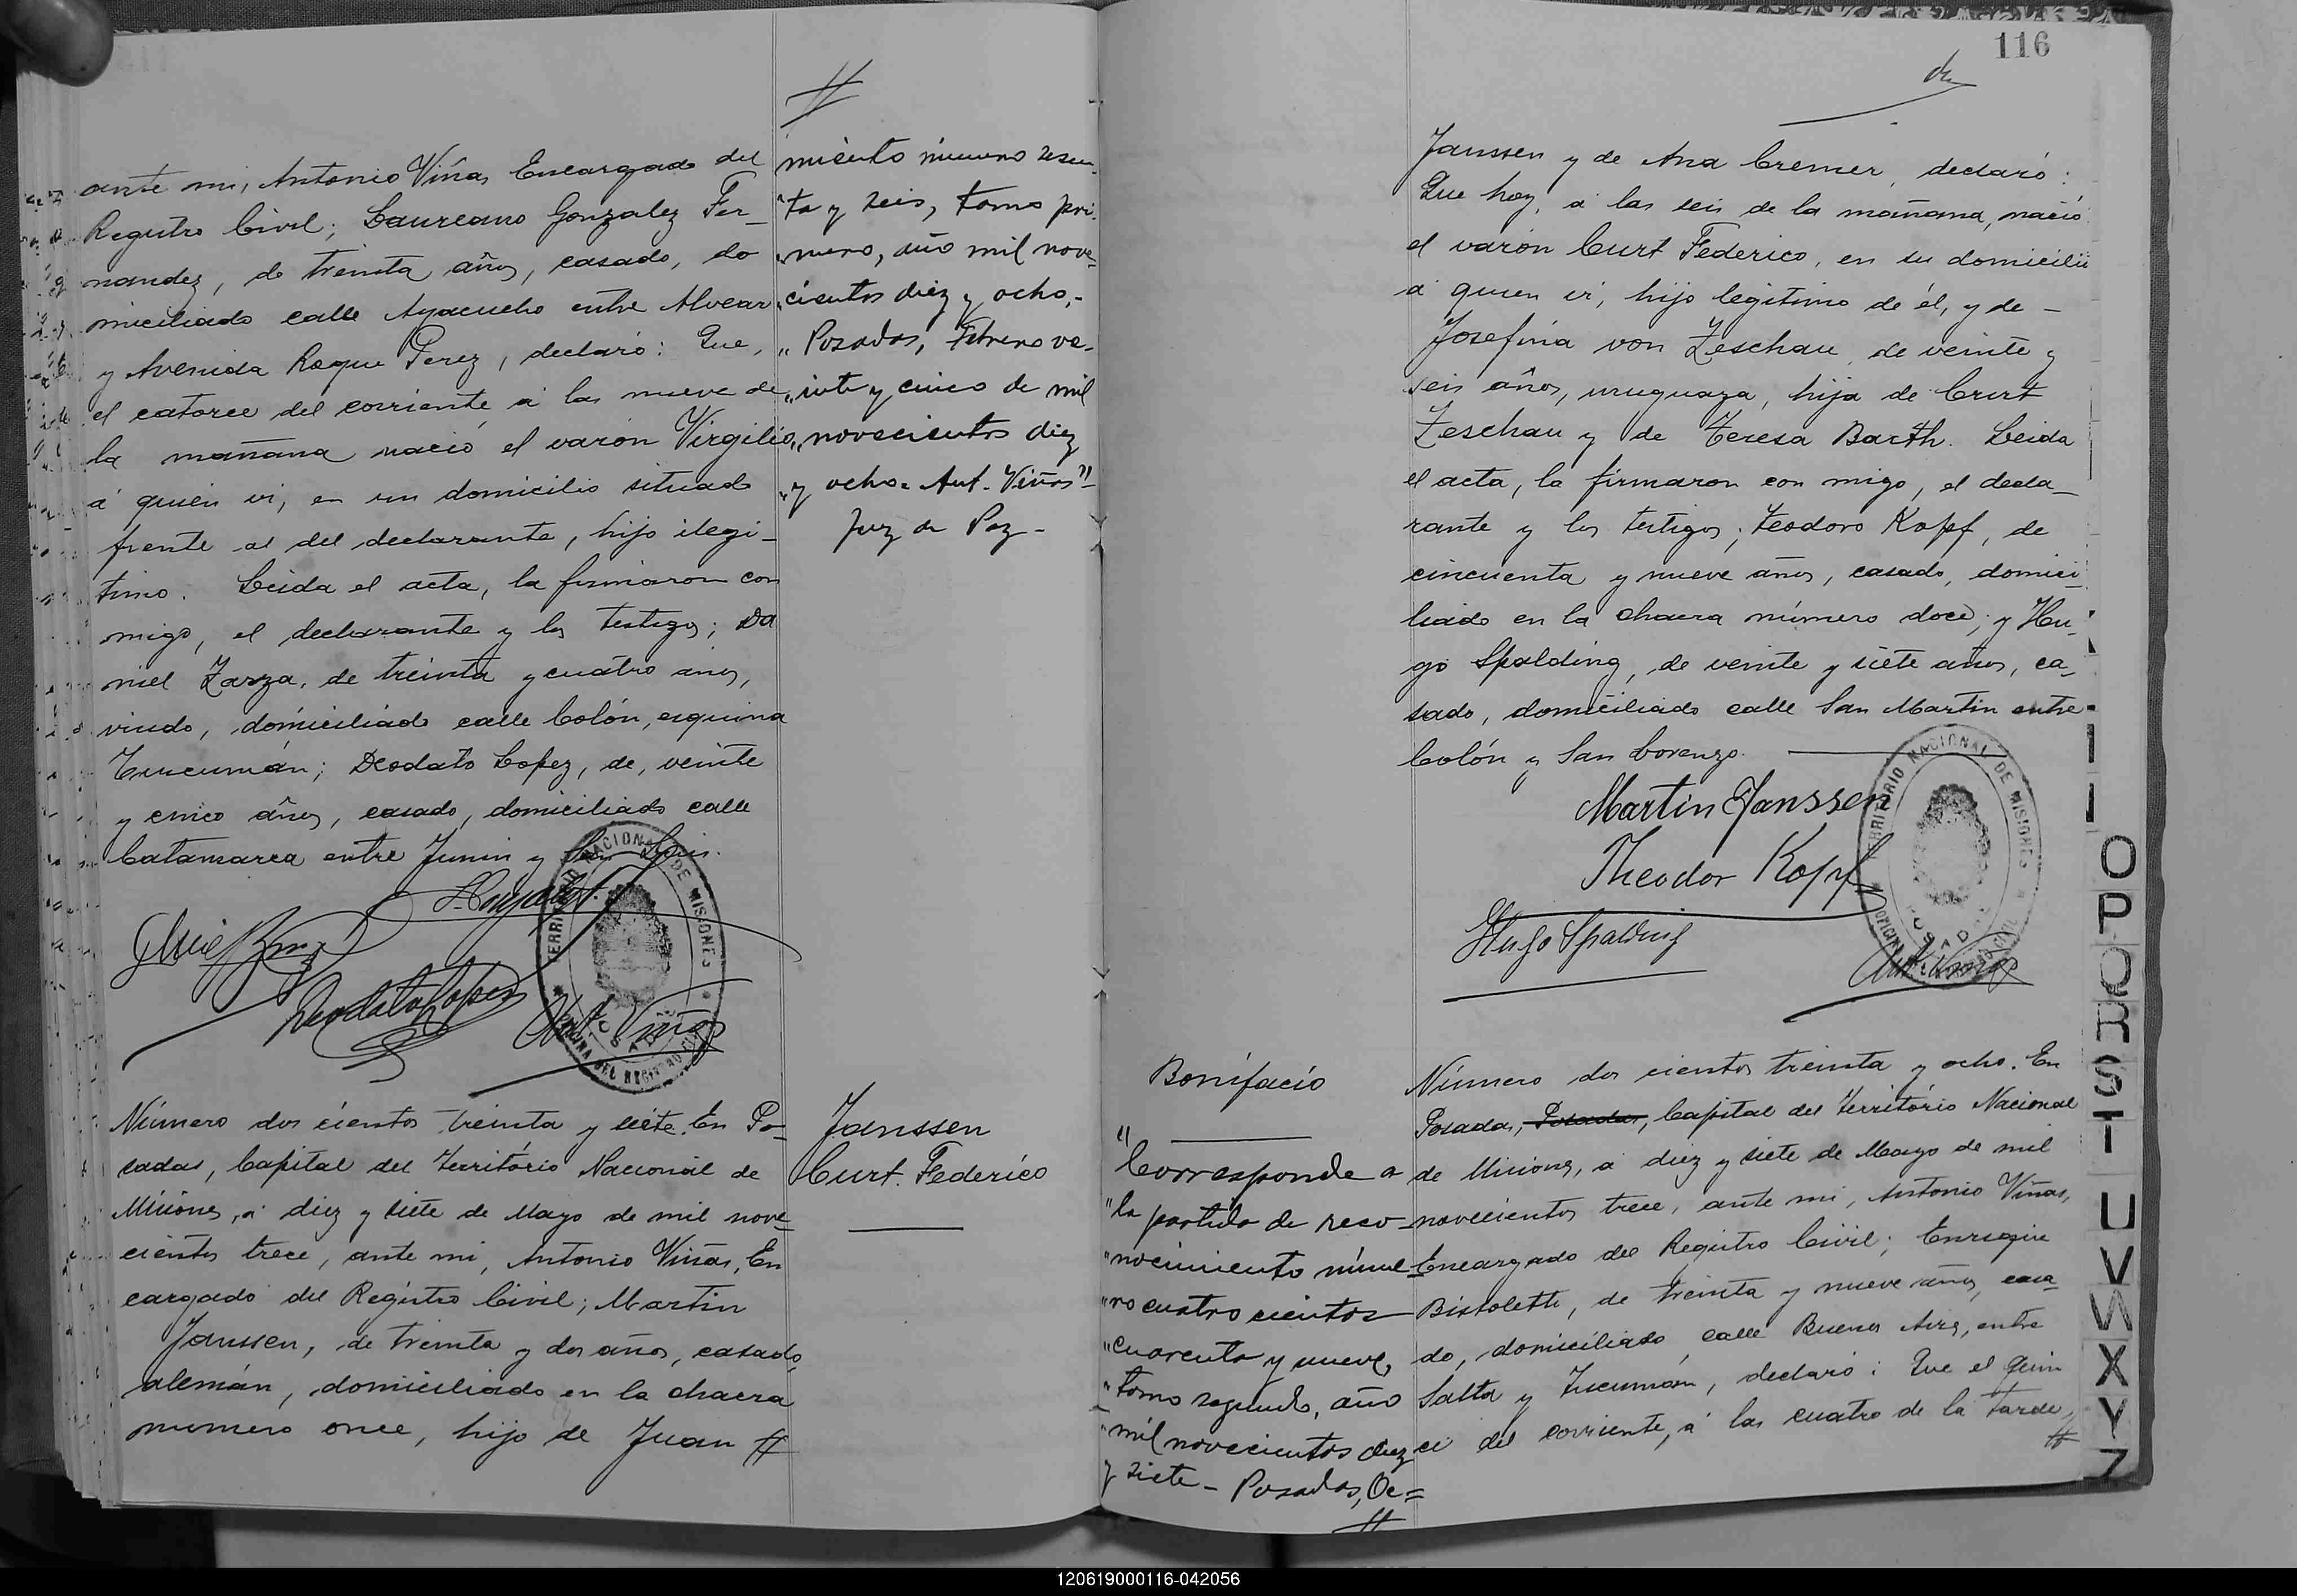 ante mi, Antonio Viñas Encargado del
Registro Civil; Laureano Gonzalez Fer-
nandez, de treinta años, casado, do
miciliado calle Ayacucho entre Alvear
y Avenida Roque Perez, declaró: Que,
el catorce del corriente, á las nueve de
la mañana nació el varón Virgilio,
á quien ví, en un domicilio situado
frente al del declarante, hijo ilegi-
timo. Leida el acta, la firmaron con
migo, el declarante y los testigos; Da
niel Zarza, de treinta y cuatro años,
viudo, domiciliado calle Colón, esquina
Tucumán; Deodato Lopez, de, veinte
y cinco años, casado, domiciliado calle
Catamarca entre Junin y San Luis.
Deodato Lopez
Ant. Viñas
TERRITORIO NACIONAL DE MISIONES
OFICINA DEL REGISTRO CIVIL
#
miento número sesen-
"ta y seis, tomo pri-
"mero, año mil nove-
"cientos diez y ocho,-
"Posadas, Febrero ve-
"inte y cinco de mil
"novecientos diez
"y ocho= Ant. Viñas"-
Juez de Paz-
Número dos cientos treinta y siete. En Po-
sadas, Capital del Território Nacional de
Misiones, á diez y siete de Mayo de mil nove-
cientos trece, ante mi, Antonio Viñas, En
cargado del Registro Civil; Martin
Janssen, de treinta y dos años, casado,
alemán, domiciliado en la chacra
numero once, hijo de Juan #
Janssen
Curt. Federico
116
Janssen y de Ana Cremer, declaró:
Que hoy, á las seis de la mañana, nació
el varón Curt Federico, en su domicilio
á quien ví, hijo legitimo de él, y de -
Josefina von Zeschau, de veinte y
seis años, uruguaya, hija de Curt
Zeschau y de Teresa Barth. Leida
el acta, la firmaron con migo, el decla-
rante y los testigos; Teodoro Kopf, de
cincuenta y nueve años, casado, domici
liado en la chacra número doce; y Hu-
go Spalding, de veinte y siete años, ca-
sado, domiciliado calle San Martin entre
Colón y San Lorenzo.
Martin Janssen
Theodor Kopf
Hugo Spalding
Ant. Viñas
TERRITORIO NACIONAL DE MISIONES
Bonifacio
"Corresponde a
"la partida de reco-
"nocimiento núme-
"ro cuatrocientos
"cuarenta y nueve,
"tomo segundo, año
"mil novecientos diez
y siete- Posadas, Oc=
#
Número dos cientos treinta y ocho. En
Posadas, Posadas, Capital del Território Nacional
de Misiones, á diez y siete de Mayo de mil
novecientos trece, ante mi, Antonio Viñas,
Encargado del Registro Civil; Enrique
Bistoletti, de treinta y nueve años, casa-
do, domiciliado calle Buenos Aires, entre
Salta y Tucumán, declaró: Que el quin
ce del corriente, á las cuatro de la tarde,
#
O
P
Q
R
S
T
U
V
W
X
Y
Z
120619000116-042056